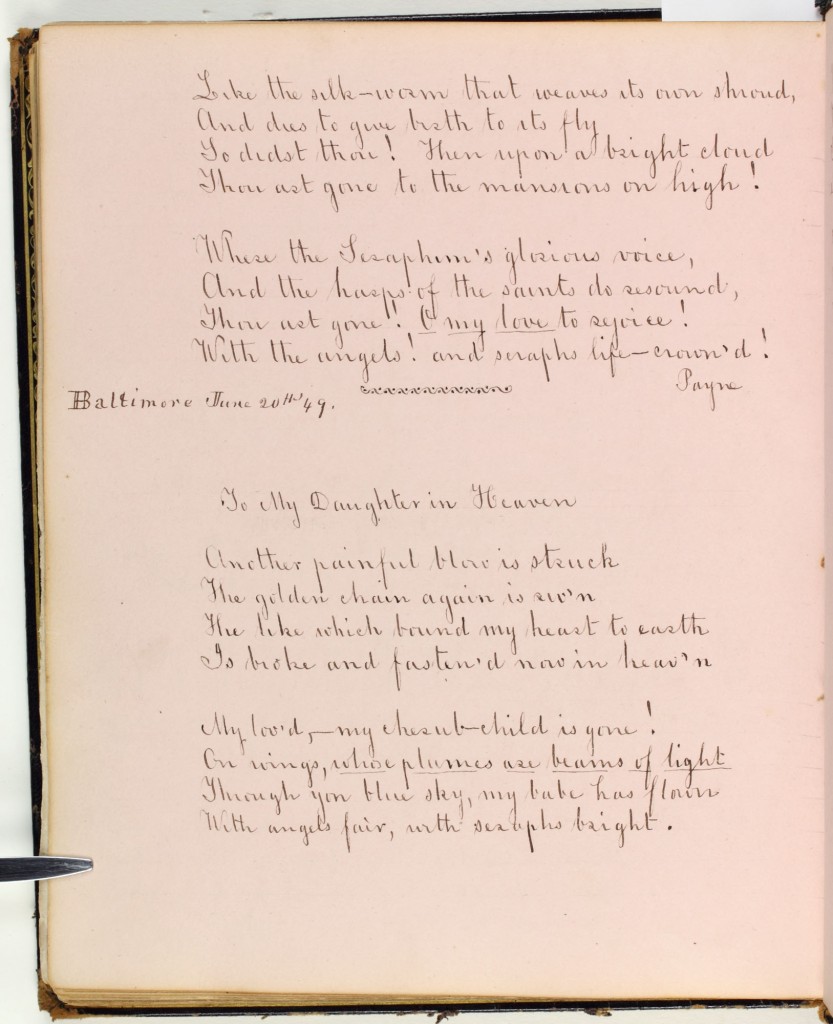 Like the silk-worm that weaves its own shroud,
And dies to give birth to its fly
So didst thou! Then upon a bright cloud
Thou art gone to the mansions on high!
Where the Seraphim's glorious voice,
And the harps of the saints do resound,
Thou art gone! O my love to rejoice!
With the angels! and seraphs life-crown'd!
Payne
Baltimore June 20th 49.
To My Daughter in Heaven
Another painful blow is struck
The golden chain again is riv'n
The like which bound my heart to earth
Is broke and fasten'd now in heav'n
My lov'd,—my cherub-child is gone!
On wings, whose plumes are beams of light
Through yon blue sky, my babe has flown
With angels fair, with seraphs bright.